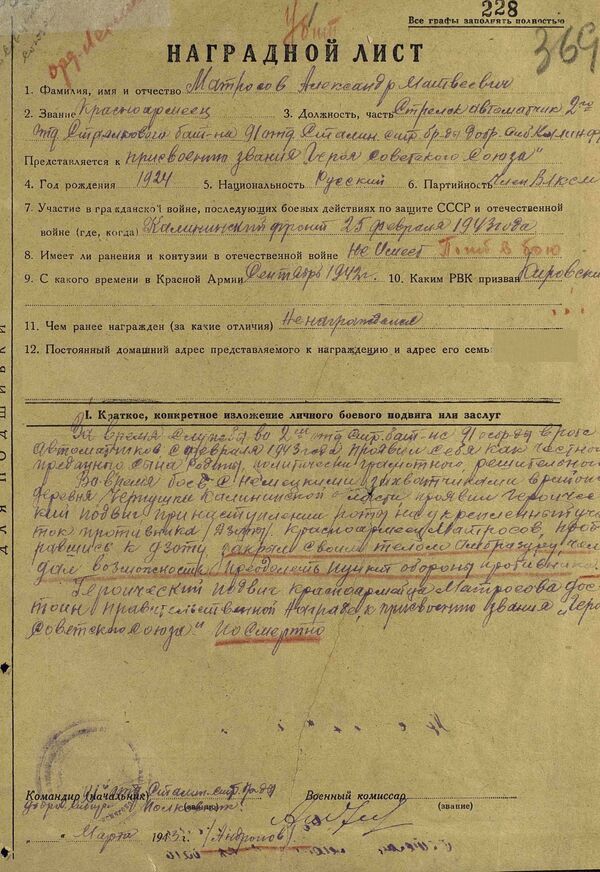 Убит
228
Все графы заполнять полностью
369
орд. Ленина
НАГРАДНОЙ ЛИСТ
1. Фамилия, имя и отчество Матросов Александр Матвеевич
2. Звание Красноармеец 3. Должность, часть Стрелок автоматчик 2го
отд Стрелкового бат-на 91 отд Сталин стр бр-ды добр. Сиб
Представляется к присвоению звания "Героя Советского Союза"
4. Год рождения 1924 5. Национальность Русский 6. Партийность член ВЛКСМ
7. Участие в гражданской войне, последующих боевых действиях по защите СССР и отечественной
войне (где, когда) Калининский фронт 25 февраля 1943 года
8. Имеет ли ранения и контузии в отечественной войне не имеет Погиб в бою
9. С какого времени в Красной Армии Сентябрь 1942 г. 10. Каким РВК призван Кировски
11. Чем ранее награжден (за какие отличия) Ненаграждался
12. Постоянный домашний адрес представляемого к награждению и адрес его семь
ДЛЯ ПОДШИВКИ
I. Краткое, конкретное изложение личного боевого подвига или заслуг
За время службы во 2ом отд стр. бат-не 91 осбр-ды в роте
автоматчиков с февраля 1943 года проявил себя как честного
преданного сына Родины, политически грамотного, решительного
Во время боев с немецкими захватчиками в районе
деревня Чернушки Калининской области проявил героичес
кий подвиг при наступлении роты на укрепленный учас
ток противника /Дзоты/. Красноармеец Матросов, проб
равшись к дзоту закрыл своим телом амбразуру, чем
дал возможность преодолеть пункт обороны противника.
Героический подвиг красноармейца Матросова дос
тоин правительственной награды, к присвоению звания "Геро
Советского Союза" Посмертно
Командир (начальник) 91 отд Сталин. стр. бр-ды
добров. Сибир. Полковник (звание)
Военный комиссар
(звание)
" " Марта 1943 г. /Андронов/